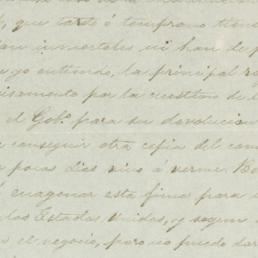 que tarde ó temprano
inmortales ni han de
yo entiendo, la principal
por la cuestion de
el Gobº para su devolucion
conseguir otra copia del
pocos dias vino á verme
enagenar esta finca para
los Estados Unidos, y segun
el negocio, pero no puedo dar